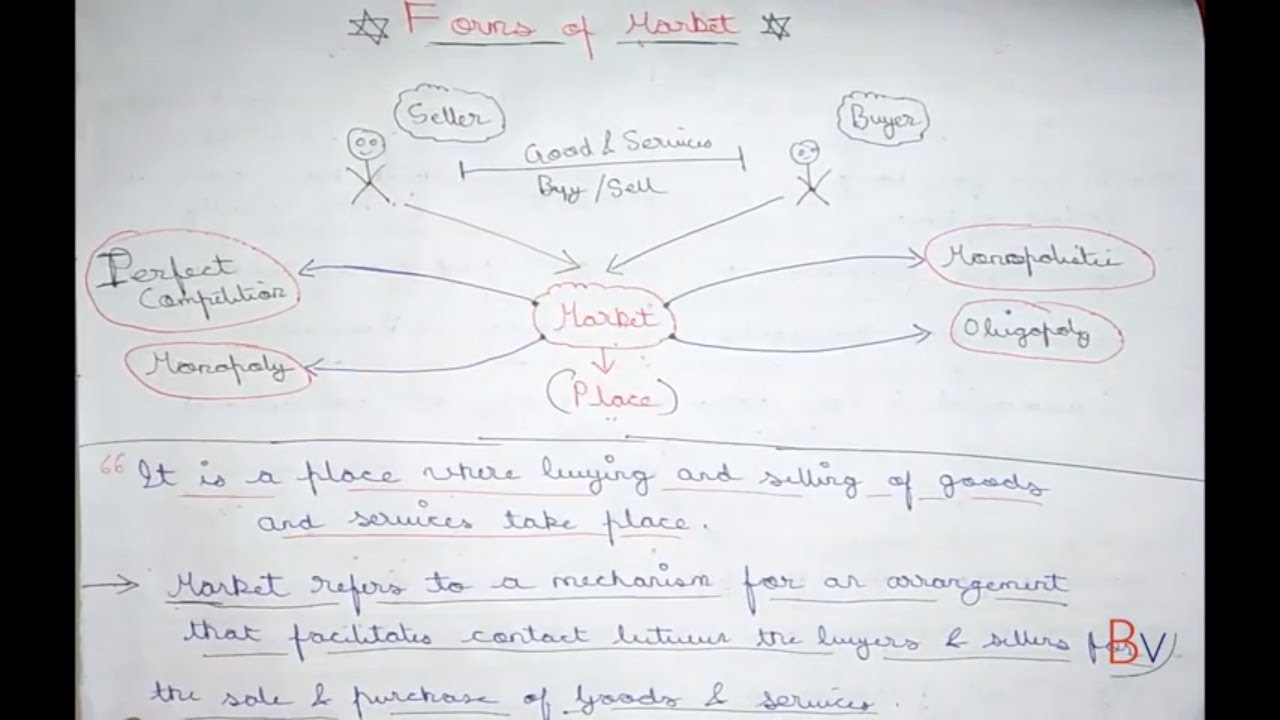 Forms of Market
Seller
Buyer
Good & Services
Buy/Sell
Perfect
Competition
Monopolistic
Market
Oligopoly
Monopoly
(Place)
“ It is a place where buying and selling of goods
and services take place.
→ Market refers to a mechanism for an arrangement
that facilitates contact between the buyers & sellers for
the sale & purchase of goods & services.
BV